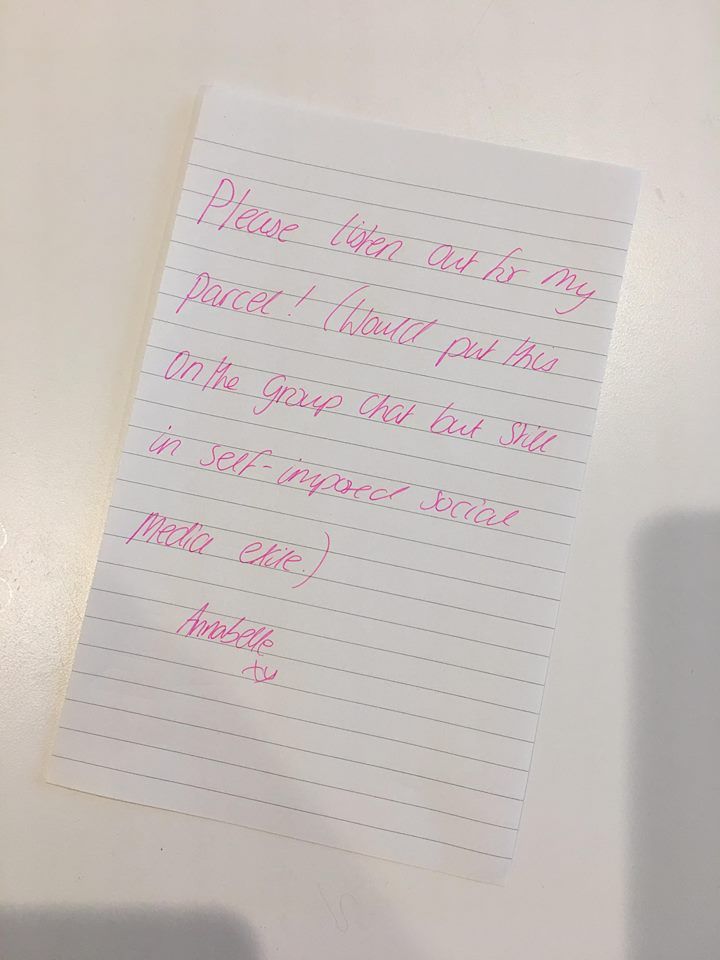 Please listen out for my
parcel! (Would put this
on the group chat but still
in self-imposed social
media exile.)
Annabelle